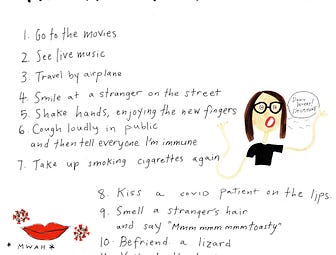 1. Go to the movies
2. See live music
3. Travel by airplane
4. Smile at a stranger on the street
5. Shake hands, enjoying the new fingers
6. Cough loudly in public
and then tell everyone I'm immune
7. Take up smoking cigarettes again
8. Kiss a COVID patient on the lips
* MWAH *
9. Smell a stranger's hair
and say "Mmm mmm mmm toasty"
10. Befriend a lizard